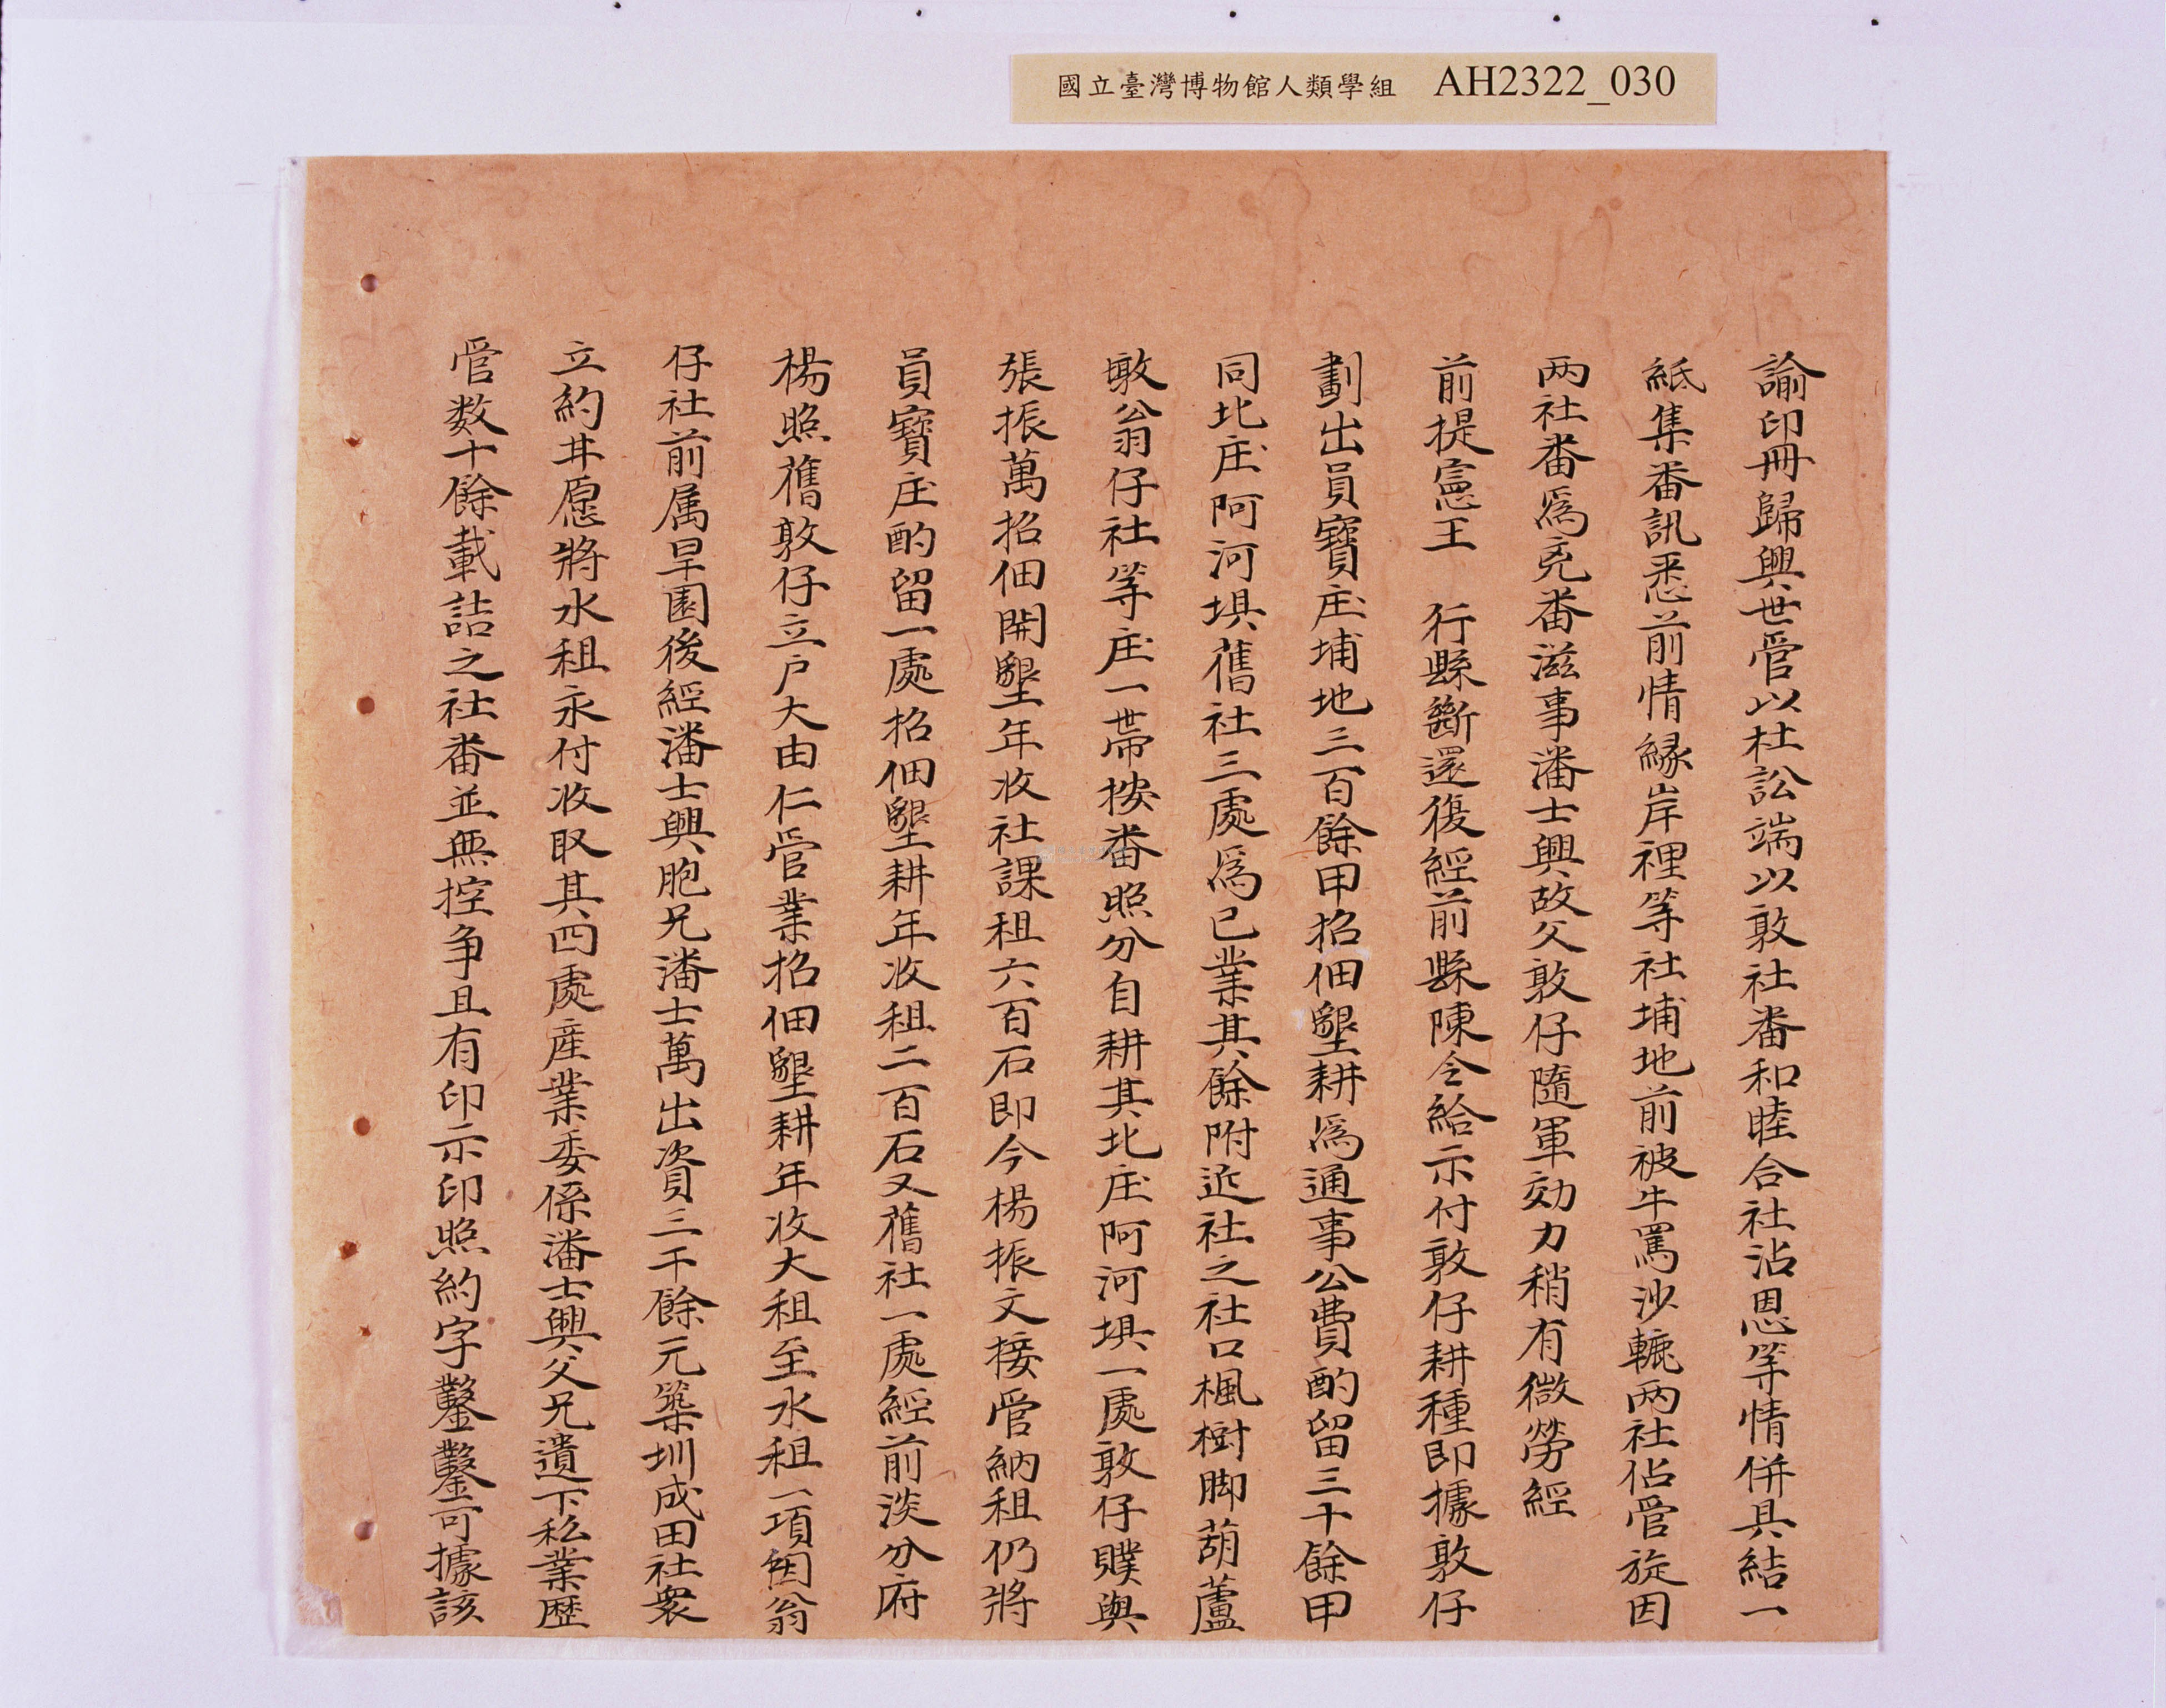 國立臺灣博物館人類學組 AH2322_030
諭印冊歸興世管以杜訟端以敦社番和睦合社沾恩等情併具結一
紙集番訊悉前情緣岸裡等社埔地前被牛罵沙轆两社佔管旋因
两社番為兇番滋事潘士興故父敦仔隨軍効力稍有微勞經
前提憲王 行縣斷還復經前縣陳令給示付敦仔耕種即據敦仔
劃出員寶庄埔地三百餘甲招佃墾耕為通事公費酌留三十餘甲
同北庄阿河埧舊社三處為已業其餘附近社之社口楓樹脚葫蘆
墩翁仔社等庄一帶按番照分自耕其北庄阿河埧一處敦仔贌與
張振萬招佃開墾年收社課租六百石即今楊振文接管納租仍將
員寶庄酌留一處招佃墾耕年收租二百石又舊社一處經前淡分府
楊照舊敦仔立户大由仁管業招佃墾耕年收大租至水租一項因翁
仔社前属旱園後經潘士興胞兄潘士萬出資三千餘元築圳成田社衆
立約并愿將水租永付收取其四處産業委係潘士興父兄遺下私業歷
管数十餘載詰之社番並無控争且有印示印照約字鑿鑿可據該